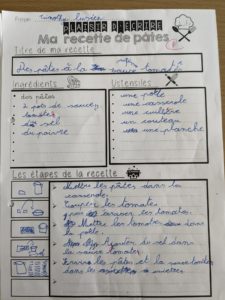 Prénom :
PLAISIR D'ÉCRIRE
Ma recette de pâtes
Titre de ma recette
Des pâtes à la sauce tomate
Ingrédients
des pâtes
2 pots de sauce
tomates
sel
du poivre
Ustensiles
une poêle
une casserole
une cuillère
un couteau
une planche
Les étapes de la recette
Mettre les pâtes dans la
casserole.
Couper les tomates
les tomates.
Mettre les tomates dans
la poêle.
Ajouter du sel dans
la sauce tomate.
les pâtes et la sauce
dans les